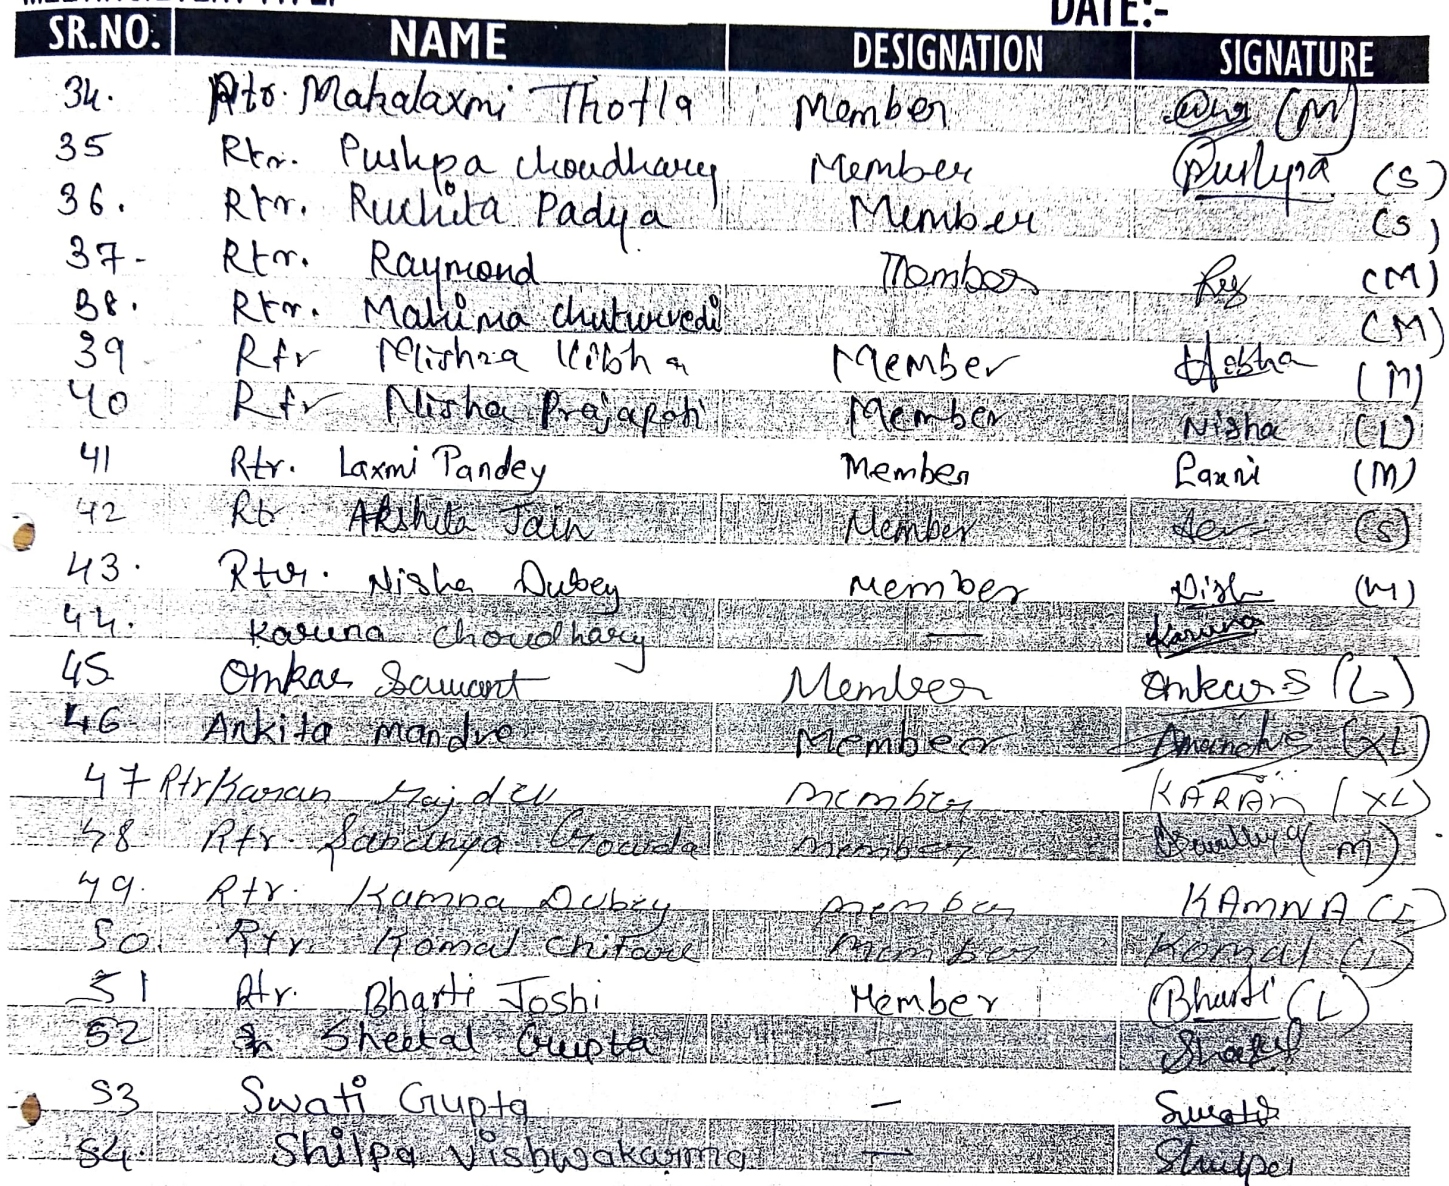 DATE:-
SR.NO. NAME DESIGNATION SIGNATURE
34. Rtr. Mahalaxmi Thotla Member (M)
35 Rtr. Pushpa choudhary Member Pushpa (S)
36. Rtr. Ruchita Padya Member (S)
37- Rtr. Raymond Member Ray (M)
38. Rtr. Mahima chuturvedi (M)
39 Rtr Mishra Vibha Member Vibha (M)
40 Rtr Nisha Prajapati Member Nisha (L)
41 Rtr. Laxmi Pandey Member Laxmi (M)
42 Rtr Akshita Jain Member (S)
43. Rtr. Nisha Dubey Member Nish (M)
44. Karuna Choudhary — Karuna
45 Omkar Sawant Member Omkar S (L)
46 Ankita mandre Member Amandre (XL)
47 Rtr Karan Member KARAN (XL)
48 Rtr. Gowda member (m)
49. Rtr. Kamna Dubey member KAMNA (L)
50. Rtr. Komal Chitare Member Komal (L)
51 Rtr. Bharti Joshi Member Bharti (L)
52 Sheetal Gupta — Sheetal
53 Swati Gupta — Swati
54. Shilpa Vishwakarma — Shilpa